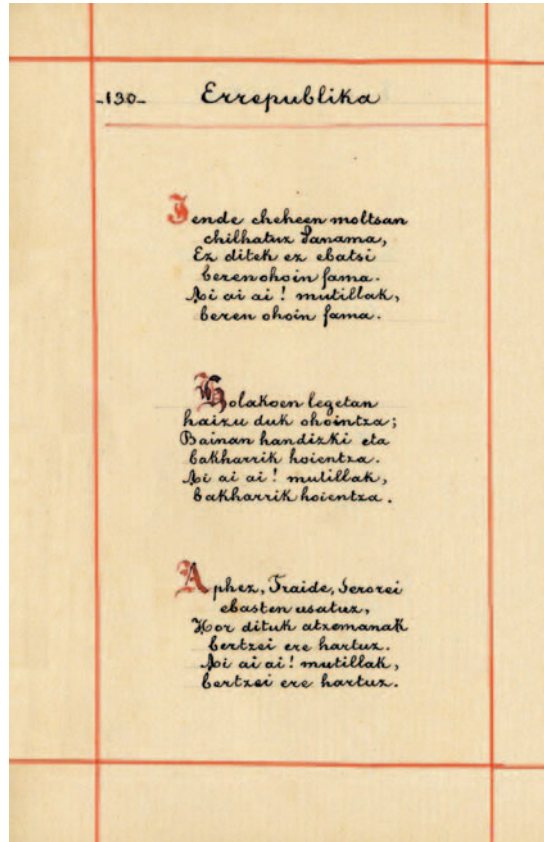 -130- Errepublika
Jende cheheen moltsan
chilhatuz Panama,
Ez ditek ez ebatsi
beren ohoin fama.
Ai ai ai! mutillak,
beren ohoin fama.
Holakoen legetan
haizu duk ohointza;
Bainan handizki eta
bakharrik hoientza.
Ai ai ai! mutillak,
bakharrik hoientza.
Aphez, Fraide, Serorei
ebasten usatuz,
Hor dituk atzemanak
bertzei ere hartuz.
Ai ai ai! mutillak,
bertzei ere hartuz.